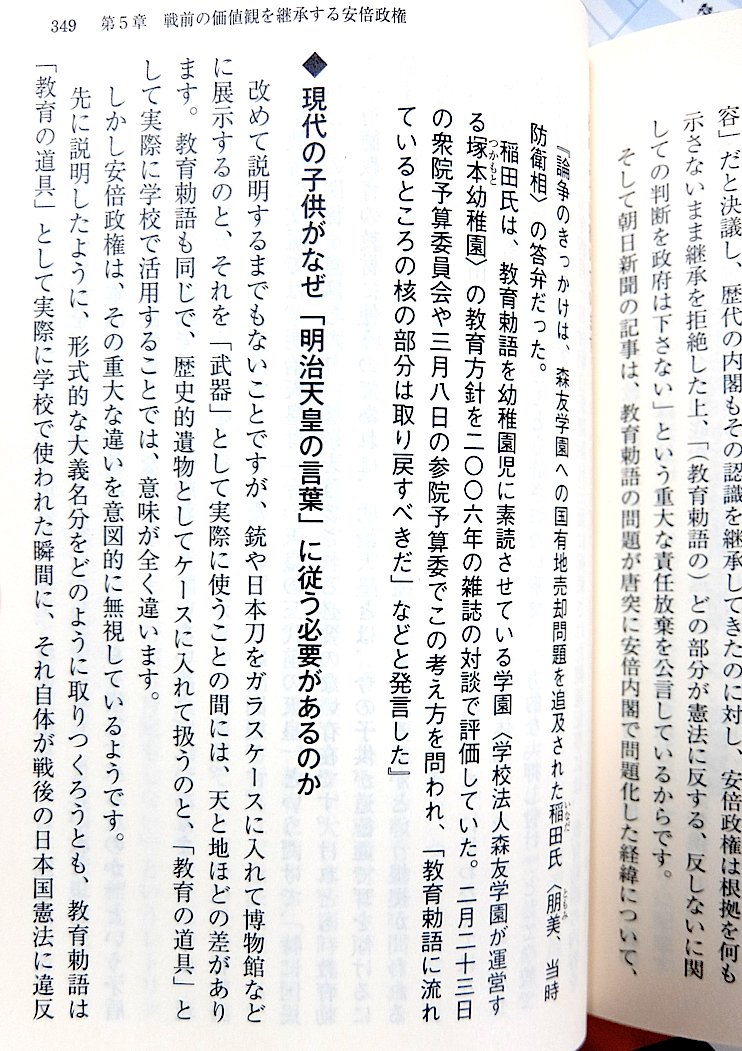 容」だと決議し、歴代の内閣もその認識を継承してきたのに対し、安倍政権は根拠を何も
示さないまま継承を拒絶した上、「（教育勅語の）どの部分が憲法に反する、反しないに関
しての判断を政府は下さない」という重大な責任放棄を公言しているからです。
そして朝日新聞の記事は、教育勅語の問題が唐突に安倍内閣で問題化した経緯について、
349 第5章 戦前の価値観を継承する安倍政権
『論争のきっかけは、森友学園への国有地売却問題を追及された稲田氏〈朋美、当時
いなだ
ともみ
防衛相〉の答弁だった。
稲田氏は、教育勅語を幼稚園児に素読させている学園〈学校法人森友学園が運営す
る塚本幼稚園〉の教育方針を二〇〇六年の雑誌の対談で評価していた。二月二十三日
つかもと
の衆院予算委員会や三月八日の参院予算委でこの考え方を問われ、「教育勅語に流れ
ているところの核の部分は取り戻すべきだ」などと発言した』
◆現代の子供がなぜ「明治天皇の言葉」に従う必要があるのか
改めて説明するまでもないことですが、銃や日本刀をガラスケースに入れて博物館など
に展示するのと、それを「武器」として実際に使うことの間には、天と地ほどの差があり
ます。教育勅語も同じで、歴史的遺物としてケースに入れて扱うのと、「教育の道具」と
して実際に学校で活用することでは、意味が全く違います。
しかし安倍政権は、その重大な違いを意図的に無視しているようです。
先に説明したように、形式的な大義名分をどのように取りつくろうとも、教育勅語は
「教育の道具」として実際に学校で使われた瞬間に、それ自体が戦後の日本国憲法に違反